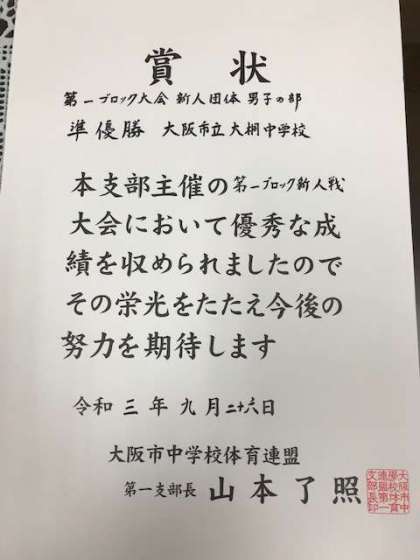 賞状
第一ブロック大会 新人団体 男子の部
準優勝 大阪市立大桐中学校
本支部主催の第一ブロック新人戦
大会において優秀な成
績を収められましたので
その栄光をたたえ今後の
努力を期待します
令和三年九月二十六日
大阪市中学校体育連盟
第一支部長 山本了照